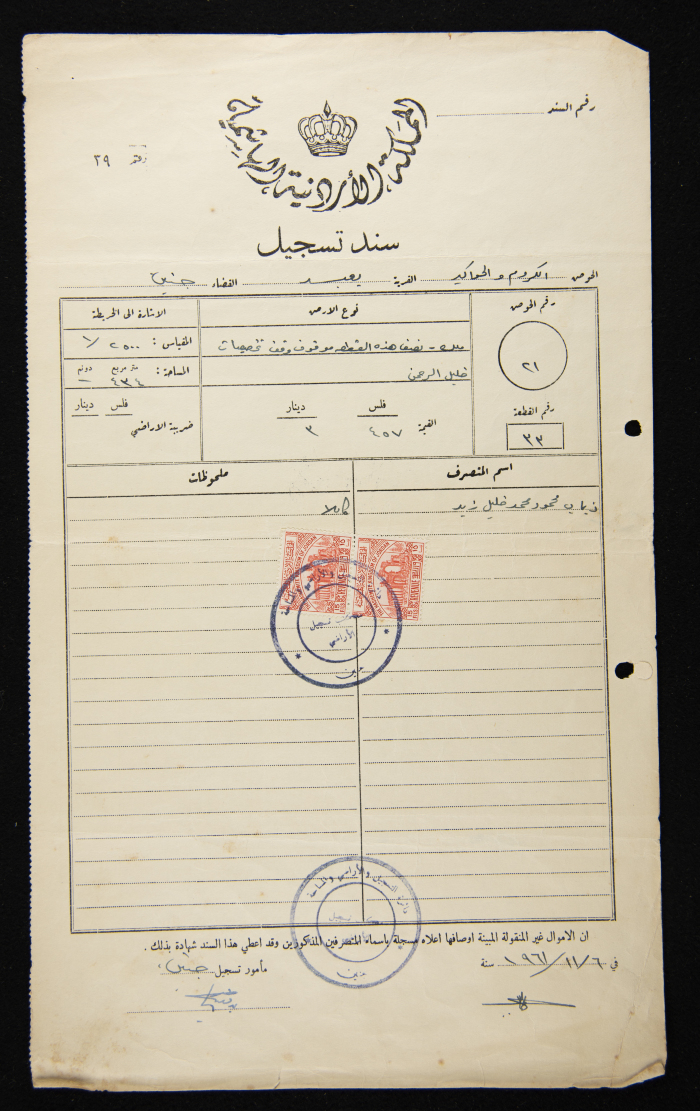 رقم السند
المملكة الأردنية الهاشمية
٢٩
سند تسجيل
الحوض الكروم والحواكير القرية يعبد القضاء جنين
رقم الحوض
٢١
رقم القطعة
٣٣
نوع الارض
ملك - نصف هذه القطعه موقوف وقف تخصيصات
خليل الرحمن
فلس دينار
القيمة ٤٥٧ ٣
الاشارة الى الخريطة
المقياس : ١/٢٥٠٠
متر مربع دونم
المساحة : ٤٣٤ -
فلس دينار
ضريبة الاراضي
اسم المتصرف
ملحوظات
ذياب محمود محمد خليل زيد
كاملا
دائرة التسجيل والأراضي والمساحة
تسجيل
الأراضي
جنين
دائرة التسجيل والأراضي والمساحة
تسجيل
جنين
ان الاموال غير المنقولة المبينة اوصافها اعلاه مسجلة باسماء المتصرفين المذكورين وقد اعطي هذا السند شهادة بذلك .
في ٦/١١/١٩٦١ سنة
مأمور تسجيل جنين